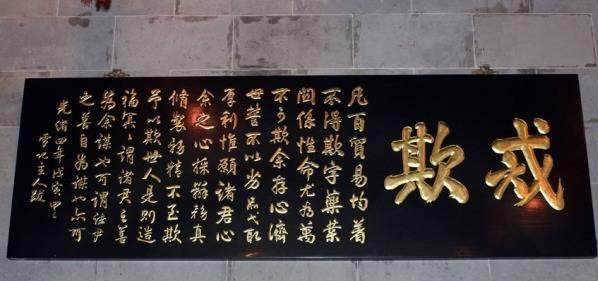 戒欺
凡百貿易均着
不得欺字藥業
關係性命尤為萬
不可欺余存心濟
世誓不以劣品弋取
厚利惟願諸君心
余之心採辦務真
脩製務精不至欺
予以欺世人是則造
福冥冥謂諸君之善
為余謀也可謂諸君
之善自為謀也亦可
光緒四年戊寅
雪記主人跋